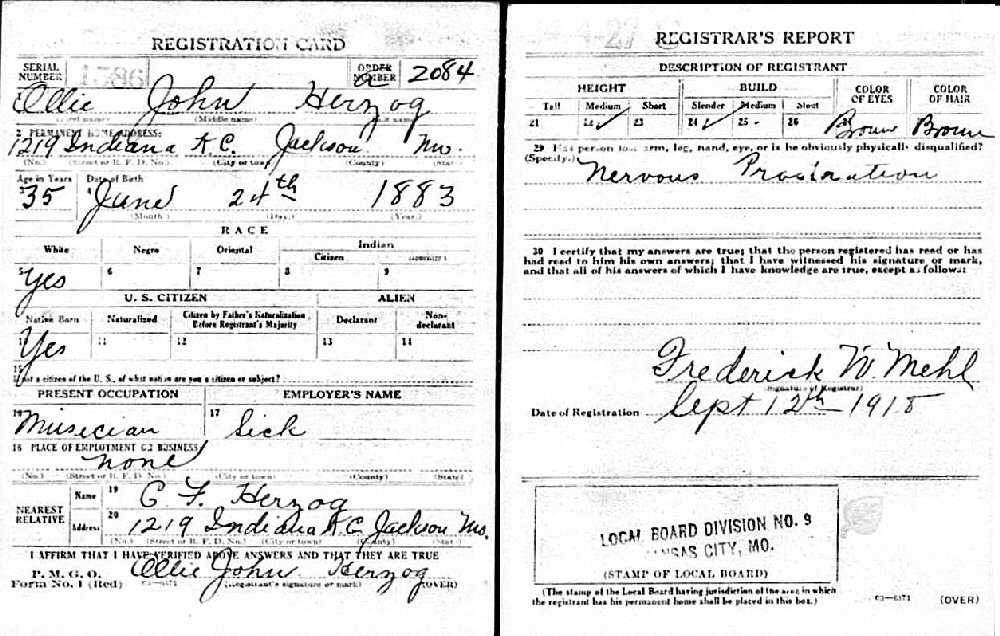 REGISTRATION CARD
SERIAL NUMBER 1386 ORDER NUMBER a 2084
Ollie John Herzog
(First name) (Middle name) (Last name)
2 PERMANENT HOME ADDRESS:
1219 Indiana K.C. Jackson Mo.
(No.) (Street or R. F. D. No.) (City or town) (County) (State)
Age in Years Date of Birth
35 June 24th 1883
(Month.) (Day.) (Year.)
RACE
White Negro Oriental Indian
Citizen
Yes 6 7 8 9
U. S. CITIZEN ALIEN
Native Born Naturalized Citizen by Father's Naturalization Before Registrant's Majority Declarant Non-declarant
Yes 11 12 13 14
15 If not a citizen of the U. S., of what nation are you a citizen or subject?
PRESENT OCCUPATION EMPLOYER'S NAME
16 Musecian 17 Sick
18 PLACE OF EMPLOYMENT OR BUSINESS
none
(No.) (Street or R. F. D. No.) (City or town) (County) (State)
NEAREST RELATIVE
Name 19 C F. Herzog
Address 20 1219 Indiana K.C. Jackson Mo.
(No.) (Street or R. F. D. No.) (City or town) (County) (State)
I AFFIRM THAT I HAVE VERIFIED ABOVE ANSWERS AND THAT THEY ARE TRUE
P. M. G. O.
Form No. 1 (Red) Ollie John Herzog
(Registrant's signature or mark) (OVER)
REGISTRAR'S REPORT
DESCRIPTION OF REGISTRANT
HEIGHT BUILD COLOR OF EYES COLOR OF HAIR
Tall Medium Short Slender Medium Stout
21 22 ✓ 23 24 ✓ 25 26 Brown Brown
29 Has person lost arm, leg, hand, eye, or is he obviously physically disqualified?
(Specify.)
Nervous Prostration
30 I certify that my answers are true; that the person registered has read or has
had read to him his own answers; that I have witnessed his signature or mark,
and that all of his answers of which I have knowledge are true, except as follows:
Frederick W. Mehl
(Signature of Registrar)
Date of Registration Sept 12th 1918
LOCAL BOARD DIVISION NO. 9
KANSAS CITY, MO.
(STAMP OF LOCAL BOARD)
(The stamp of the Local Board having jurisdiction of the area in which
the registrant has his permanent home shall be placed in this box.)
03—6171 (OVER)